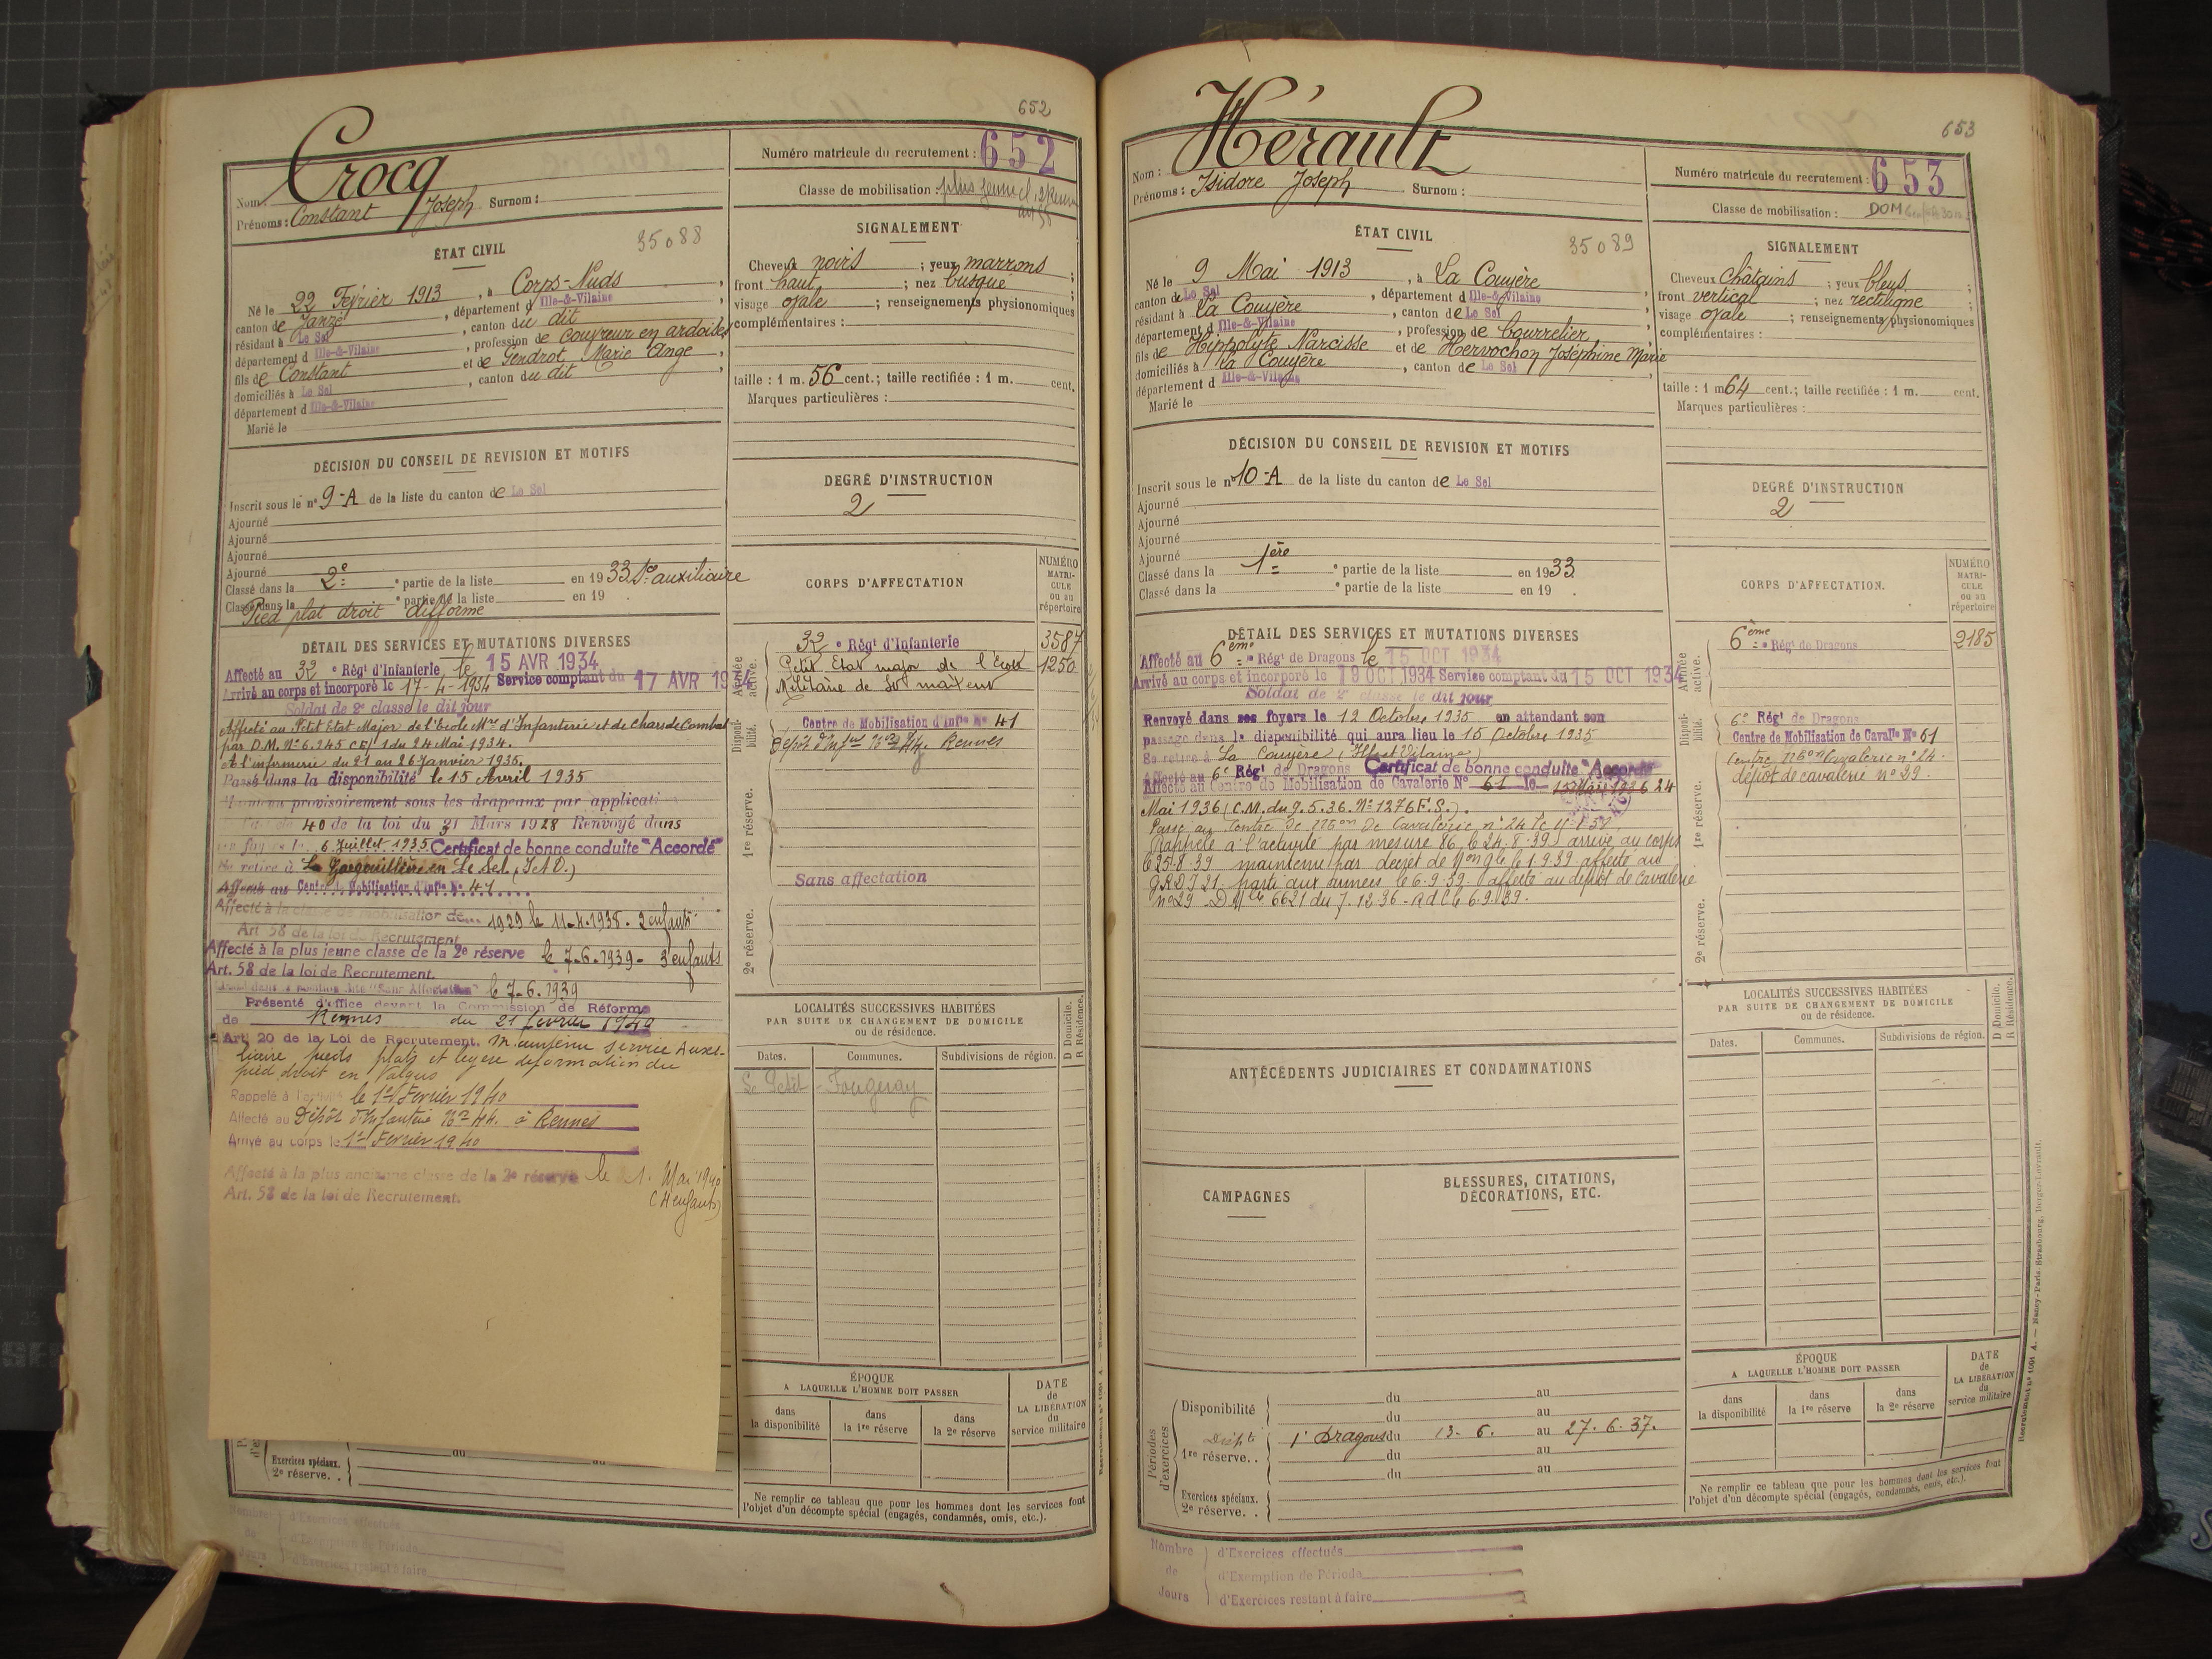 652
Crocq
Nom
Prénoms : Constant Joseph Surnom :
Numéro matricule du recrutement : 652
Classe de mobilisation : plus jeune cl. 2e Réserve
ÉTAT CIVIL
35088
Né le 22 Février 1913, à Corps-Nuds,
canton de Janzé, département d Ille-&-Vilaine
résidant à Le Sel, canton du dit
département d Ille-&-Vilaine, profession de Couvreur en ardoises
fils de Constant et de Gendrot Marie Ange,
domiciliés à Le Sel, canton du dit,
département d Ille-&-Vilaine
Marié le
SIGNALEMENT
Cheveux noirs ; yeux marrons ;
front haut ; nez busqué ;
visage ovale ; renseignements physionomiques
complémentaires :
taille : 1 m. 56 cent.; taille rectifiée : 1 m. cent.
Marques particulières :
DÉCISION DU CONSEIL DE REVISION ET MOTIFS
Inscrit sous le n° 9-A de la liste du canton de Le Sel
Ajourné
Ajourné
Ajourné
Ajourné
Classé dans la 2e partie de la liste en 1933 Sce auxiliaire
Classé dans la e partie de la liste en 19
Pied plat droit difforme
DEGRÉ D'INSTRUCTION
2
DÉTAIL DES SERVICES ET MUTATIONS DIVERSES
Affecté au 32 e Régt d'Infanterie le 15 AVR 1934
Arrivé au corps et incorporé le 17-4-1934 Service comptant du 17 AVR 1934
Soldat de 2e classe le dit jour
Affecté au Petit Etat Major de l'Ecole Mre d'Infanterie et de Chars de Combat
par D.M. N° 6.245 du 24 Mai 1934.
A l'infirmerie du 21 au 26 Janvier 1935.
Passé dans la disponibilité le 15 Avril 1935
Maintenu provisoirement sous les drapeaux par application
40 de la loi du 31 Mars 1928 Renvoyé dans
ses foyers le 6 Juillet 1935 Certificat de bonne conduite "Accordé"
Se retire à La Gargouillère en Le Sel (I & V.)
Affecté au Centre de Mobilisation d'Infie N° 41
Affecté à la classe de mobilisation de 1929 le 11-4-1938. 2 enfants
Art 58 de la loi de Recrutement
Affecté à la plus jeune classe de la 2e réserve le 7-6-1939 - 3 enfants
Art. 58 de la loi de Recrutement.
"Sans Affectation" le 7-6-1939
Présenté d'office devant la Commission de Réforme
de Rennes du 21 février 1940
Art 20 de la Loi de Recrutement. Maintenu service Auxi-
liaire pieds plats et légère déformation du
pied droit en Valgus
Rappelé à l'activité le 1er Février 1940
Affecté au Dépôt d'Infanterie N° 44. à Rennes
Arrivé au corps le 1er Février 1940
Affecté à la plus ancienne classe de la 2e réserve le 1. Mai 1940
Art. 58 de la loi de Recrutement. (4 enfants)
CORPS D'AFFECTATION
NUMÉRO MATRI-CULE ou au répertoire
Armée active.
32 e Régt d'Infanterie 3587
Petit Etat major de l'école 1250
Militaire de St maixent
Disponi-bilité.
Centre de Mobilisation d'Infie N° 41
Dépôt d'Infie N° 44. Rennes
1re réserve.
Sans affectation
2e réserve.
LOCALITÉS SUCCESSIVES HABITÉES
PAR SUITE DE CHANGEMENT DE DOMICILE
ou de résidence.
D Domicile.
R Résidence.
Dates. Communes. Subdivisions de région.
Le Petit-Fougeray
ÉPOQUE
A LAQUELLE L'HOMME DOIT PASSER
dans la disponibilité
dans la 1re réserve
dans la 2e réserve
DATE de LA LIBÉRATION du service militaire
Ne remplir ce tableau que pour les hommes dont les services font
l'objet d'un décompte spécial (engagés, condamnés, omis, etc.).
du au
Exercices spéciaux.
2e réserve. .
Nombre de Jours
d'Exercices effectués
d'Exemption de Période
d'Exercices restant à faire
653
Hérault
Nom :
Prénoms : Isidore Joseph Surnom :
Numéro matricule du recrutement : 653
Classe de mobilisation : DOM
ÉTAT CIVIL
35089
Né le 9 Mai 1913, à La Couyère
canton de Le Sel, département d Ille-&-Vilaine
résidant à La Couyère, canton de Le Sel
département d Ille-&-Vilaine, profession de bourrelier
fils de Hippolyte Narcisse et de Hervochon Joséphine Marie
domiciliés à La Couyère, canton de Le Sel
département d Ille-&-Vilaine
Marié le
SIGNALEMENT
Cheveux châtains ; yeux bleus ;
front vertical ; nez rectiligne ;
visage ovale ; renseignements physionomiques
complémentaires :
taille : 1 m 64 cent.; taille rectifiée : 1 m. cent.
Marques particulières :
DÉCISION DU CONSEIL DE REVISION ET MOTIFS
Inscrit sous le n° 10-A de la liste du canton de Le Sel
Ajourné
Ajourné
Ajourné
Ajourné
Classé dans la 1ère partie de la liste en 1933
Classé dans la e partie de la liste en 19 .
DEGRÉ D'INSTRUCTION
2
DÉTAIL DES SERVICES ET MUTATIONS DIVERSES
Affecté au 6ème Régt de Dragons le 15 OCT 1934
Arrivé au corps et incorporé le 19 OCT 1934 Service comptant du 15 OCT 1934
Soldat de 2e classe le dit jour
Renvoyé dans ses foyers le 12 Octobre 1935 en attendant son
passage dans la disponibilité qui aura lieu le 15 Octobre 1935
Se retire à La Couyère (Ille et Vilaine)
Affecté au 6e Régt de Dragons Certificat de bonne conduite "Accordé"
Affecté au Centre de Mobilisation de Cavalerie N° 61 le 24
Mai 1936 (C.M. du 9.5.36. N° 1276 F.S.).
Passé au Centre de Mon de Cavalerie n° 24 le
Rappelé à l'activité par mesure 86, le 24.8.39 arrivé au corps
le 25.8.39 maintenu par décret de Mon Gle le 1.9.39 affecté au
G.R.D.I 21 parti aux armées le 6.9.39. affecté au dépôt de Cavalerie
n° 29 - 6621 du 7.12.36 - a d le 6.9.39.
CORPS D'AFFECTATION.
NUMÉRO MATRI-CULE ou au répertoire
Armée active.
6ème Régt de Dragons 2185
Disponi-bilité.
6e Régt de Dragons
Centre de Mobilisation de Cavalie N° 61
Centre Mon Cavalerie n° 24.
dépôt de cavalerie n° 29.
1re réserve.
2e réserve.
ANTÉCÉDENTS JUDICIAIRES ET CONDAMNATIONS
CAMPAGNES
BLESSURES, CITATIONS,
DÉCORATIONS, ETC.
LOCALITÉS SUCCESSIVES HABITÉES
PAR SUITE DE CHANGEMENT DE DOMICILE
ou de résidence.
D Domicile.
R Résidence.
Dates. Communes. Subdivisions de région.
Périodes d'exercices
Disponibilité du au
du au
1re réserve. . 1e Dragons du 13. 6. au 27. 6. 37.
du au
du au
Exercices spéciaux.
2e réserve. .
ÉPOQUE
A LAQUELLE L'HOMME DOIT PASSER
dans la disponibilité
dans la 1re réserve
dans la 2e réserve
DATE de LA LIBÉRATION du service militaire
Ne remplir ce tableau que pour les hommes dont les services font
l'objet d'un décompte spécial (engagés, condamnés, omis, etc.).
Recrutement n° 1001 A. — Nancy-Paris-Strasbourg, Berger-Levrault.
Nombre de Jours
d'Exercices effectués
d'Exemption de Période
d'Exercices restant à faire